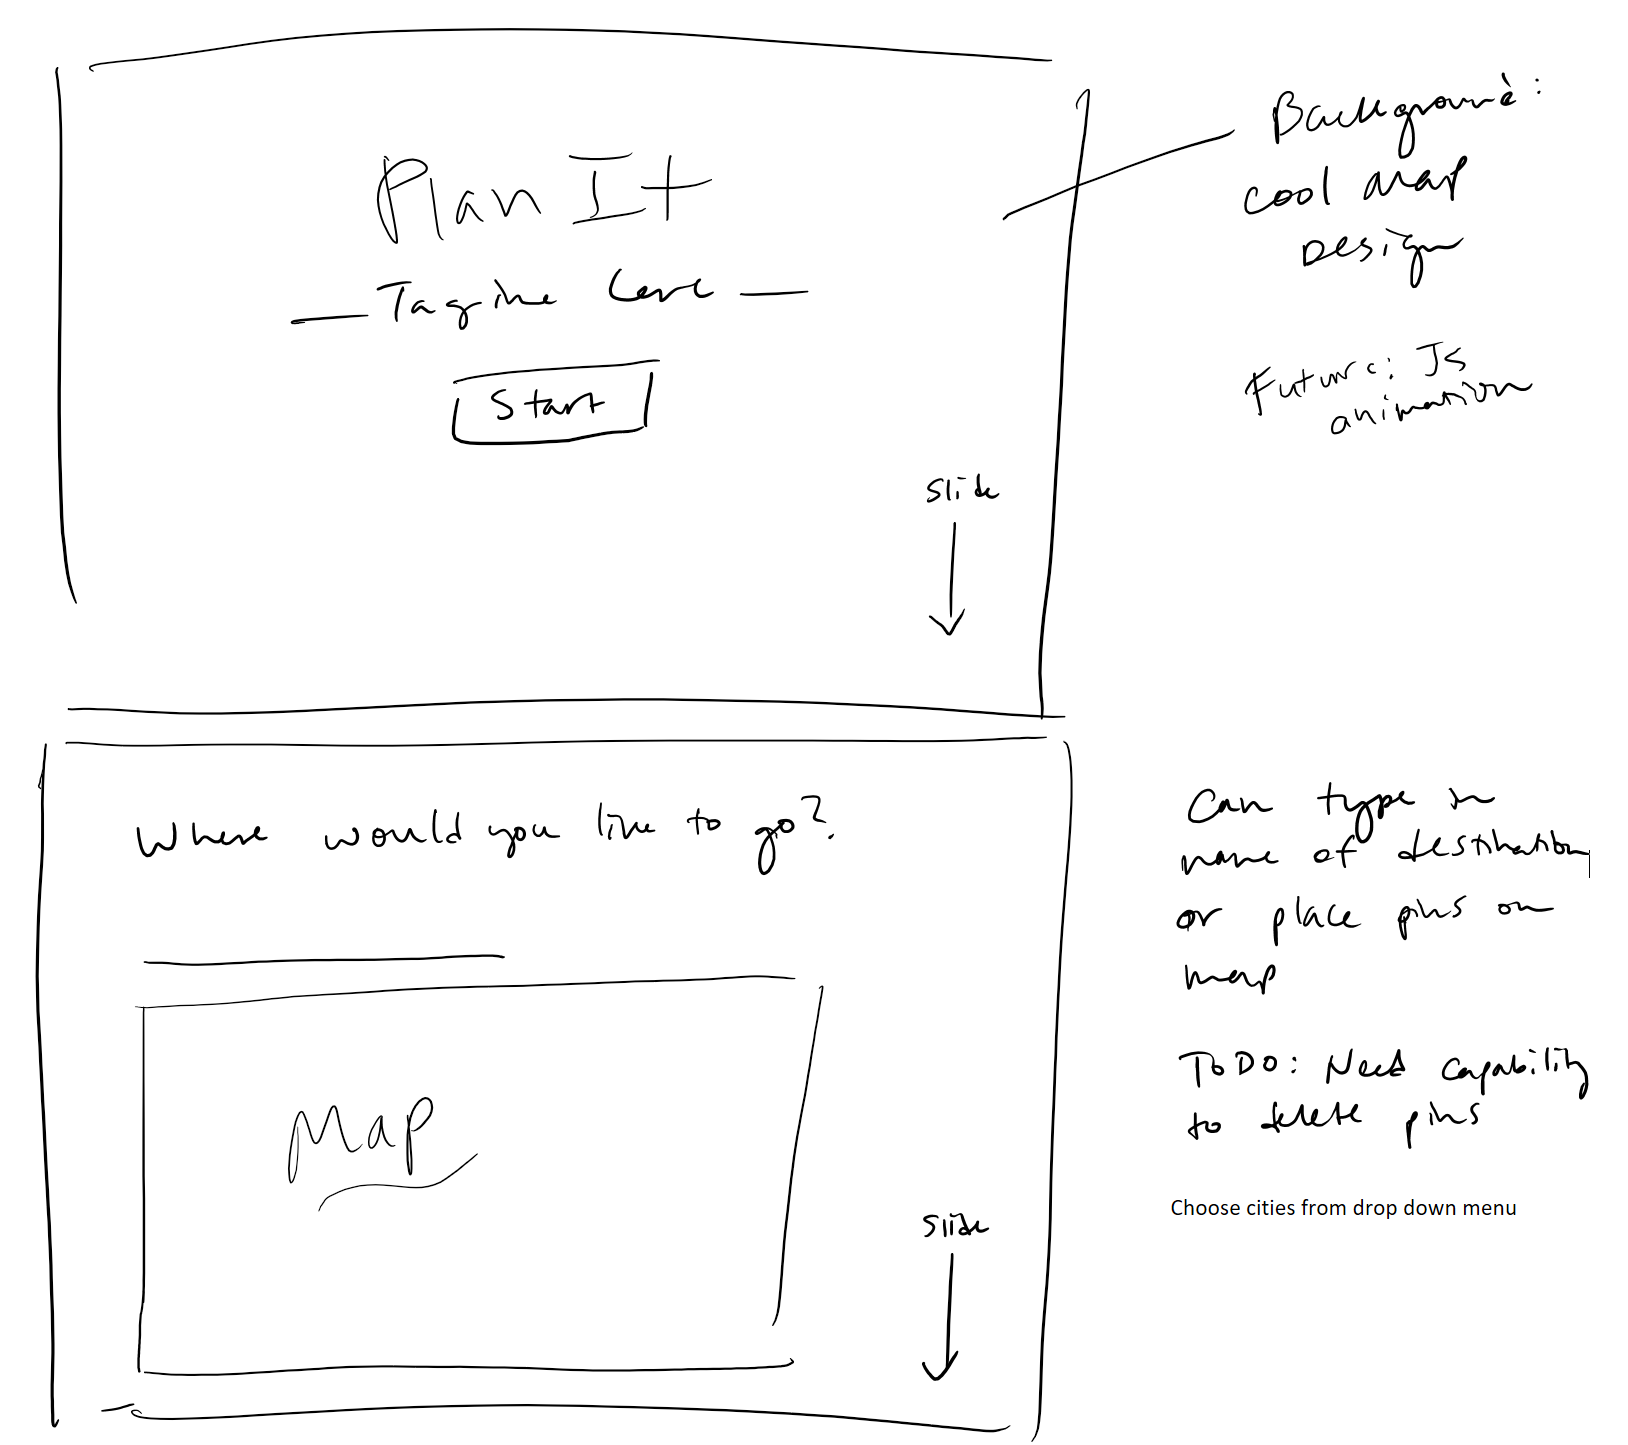 Plan It
Tagline here
Start
Slide
Background:
cool map
Design
Future: JS
animation
Where would you like to go?
Map
Slide
Can type in
name of destination
or place pins on
map
ToDo: Need capability
to delete pins
Choose cities from drop down menu